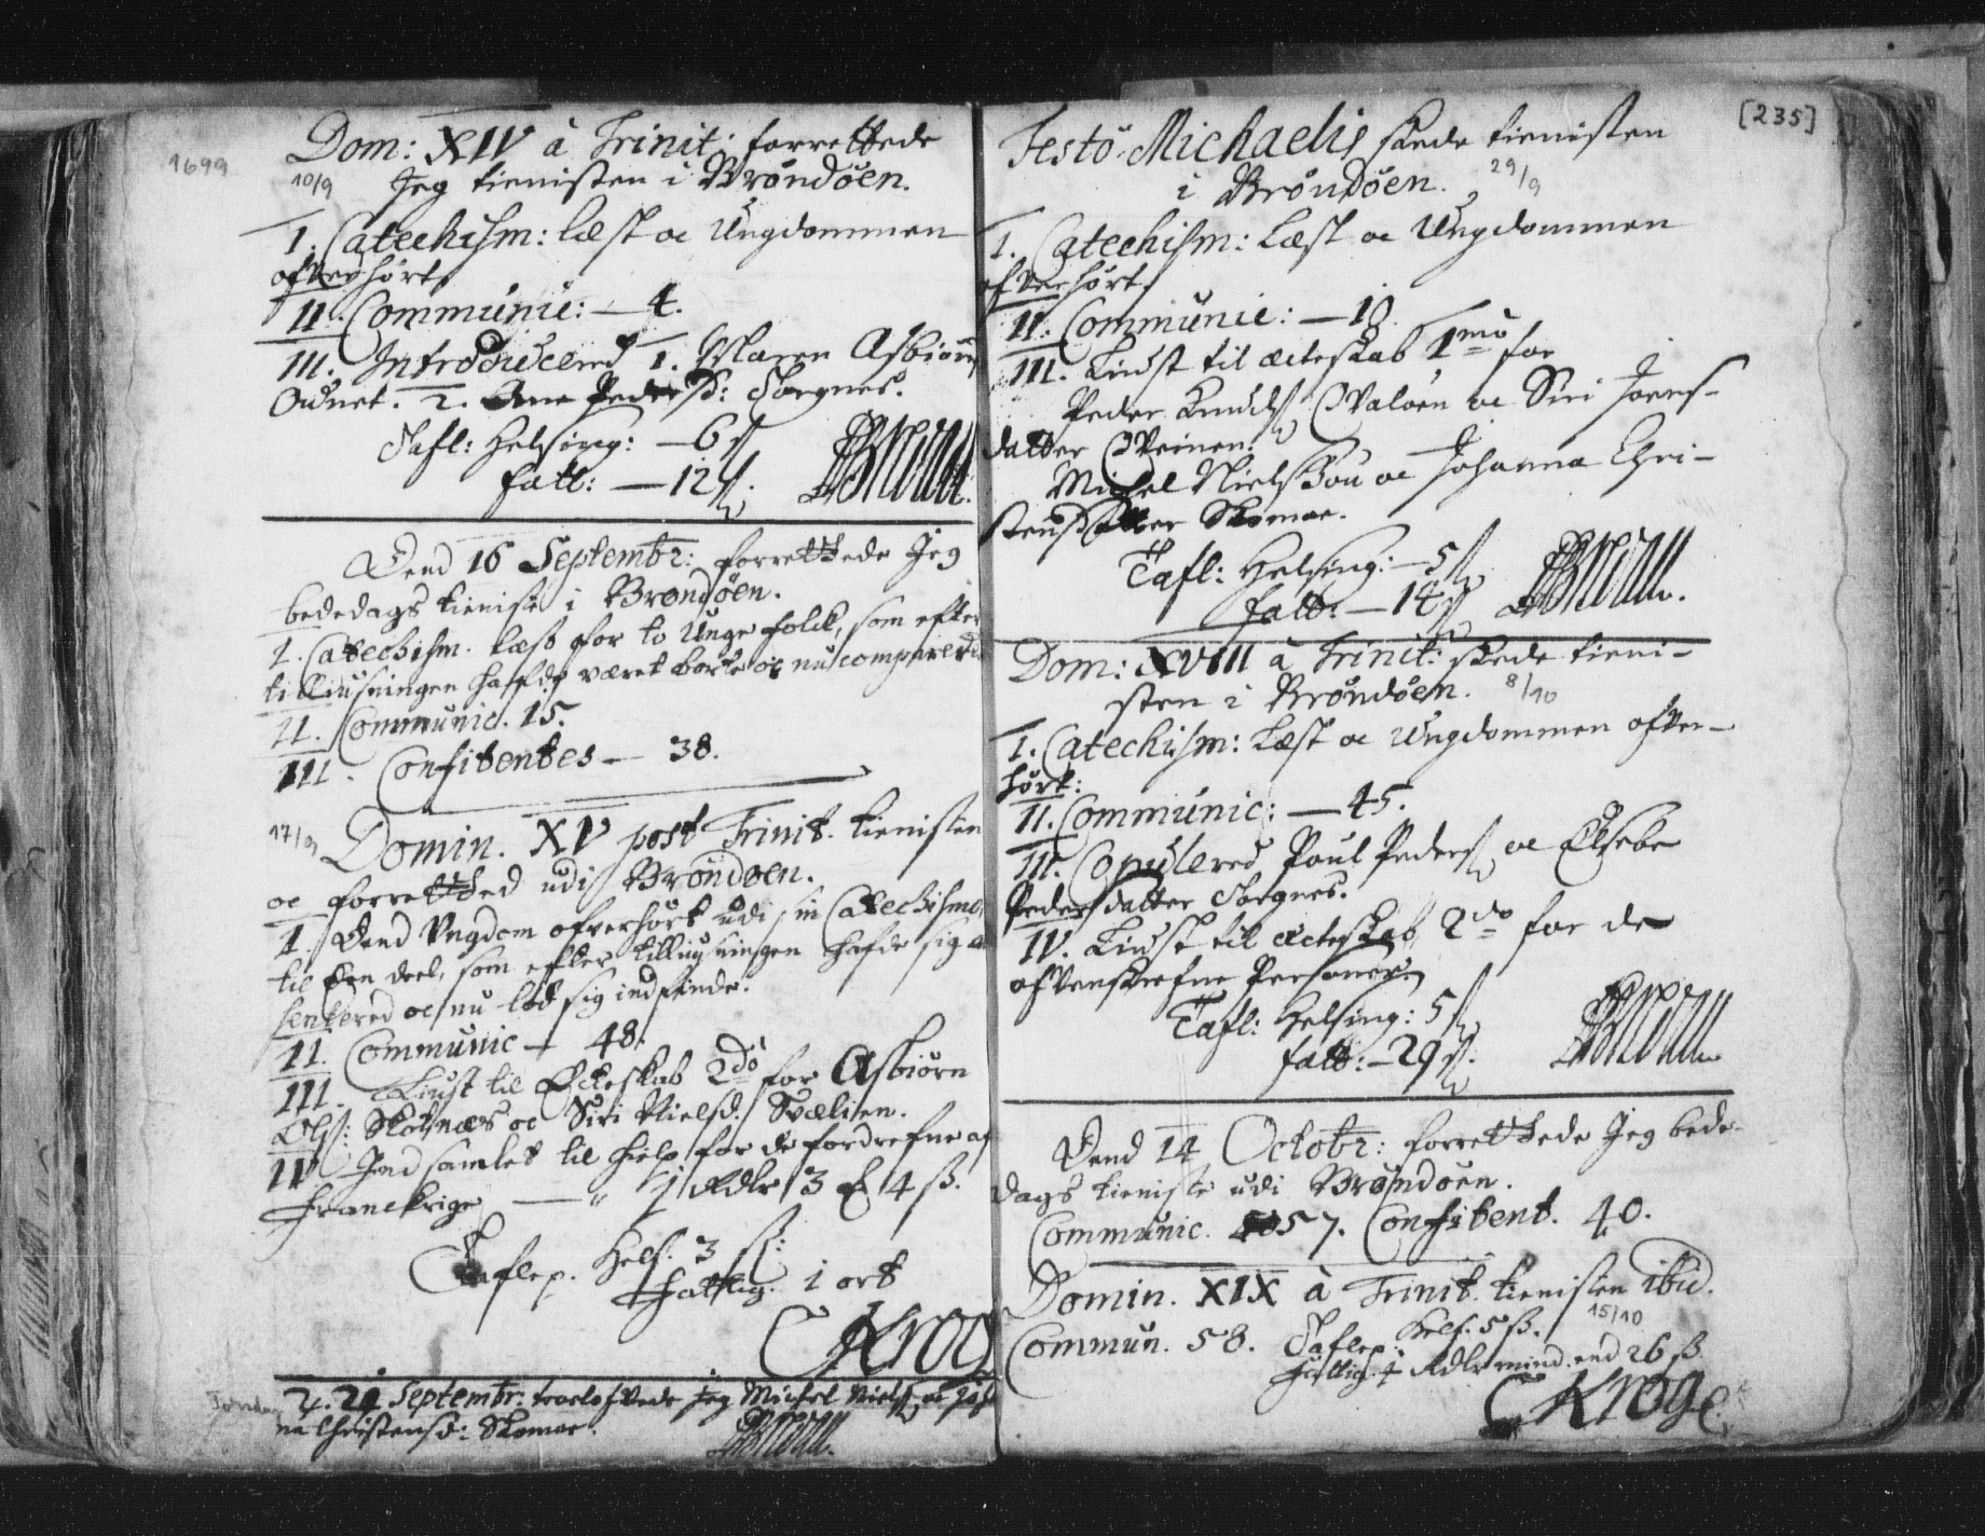 1699
Dom: XIV à Trinit: forrettede
10/9 Jeg tienisten i Brøndöen.
I. Catechism: læst oc Ungdommen
ofverhört.
II. Communic: — 4.
III. Introducered 1. Maren Asbiörns
Odnet. 2. Ane Peders D: Torgnes.
Tafl: Helsing: — 6 ß
fatt: — 12 ß.
Dend 16 Septembr: forrettede Jeg
bededags tieniste i Brøndöen.
I. Catechism. læst for to Unge folck, som efter
tilliusningen hafde været borte oc nu comparerede
II. Communic. 15.
III. Confitentes — 38.
17/9 Domin. XV post Trinit. tienisten
oc forretted udi Brøndöen.
I. Dend Ungdom ofverhört udi sin Catechismo,
til Een deel, som efter tilliusningen hafde sig
senkered oc nu lod sig indfinde.
II. Communic — 48.
III. Liust til Ecteskab 2do for Asbiörn
Ols: Skotnæs oc Siri Nielsd: Svælisen.
IV Ind samlet til hielp for de fordrefne af
Franckrige — " 1 Rdlr 3 8 4 ß.
Taflep. Hels. 3 ß:
Fattig. 1 ort
CKrog
2. 24 Septembr: troelofvede Jeg Michel Niels: oc Joha
na Christensd: Skomoe.
[235]
Festo Michaelis skede tienisten
i Brøndöen. 29/9
I. Catechism: Læst oc Ungdommen
ofverhört.
II. Communic: — 10.
III. Liust til ecteskab 1mo for
Peder Knuds: Qvaløen oc Siri Joens-
datter Qveinen.
Michel Nielssön oc Johanna Chri-
stensdatter Skomoe.
Tafl: Helsing: — 5 ß
fatt: — 14 ß
Dom: XVIII à Trinit: skede tieni-
sten i Brøndöen. 8/10
I. Catechism: Læst oc Ungdommen ofver-
hört:
II. Communic: — 45.
III. Copulered Poul Peders: oc Elsebe
Pedersdatter Torgnes.
IV. Liust til ecteskab 2do for de
ofvenskrefne Personer
Tafl: Helsing: 5 ß
fatt: — 29 ß.
Dend 14 Octobr: forrettede Jeg bede-
dags tieniste udi Brøndöen.
Communic. 57. Confitent. 40.
Domin. XIX à Trinit. tienisten ibid.
15/10
Commun. 58. Taflep: Hels. 5 ß.
Fattig: 1 Rdlr mind. end 26 ß
CKroge